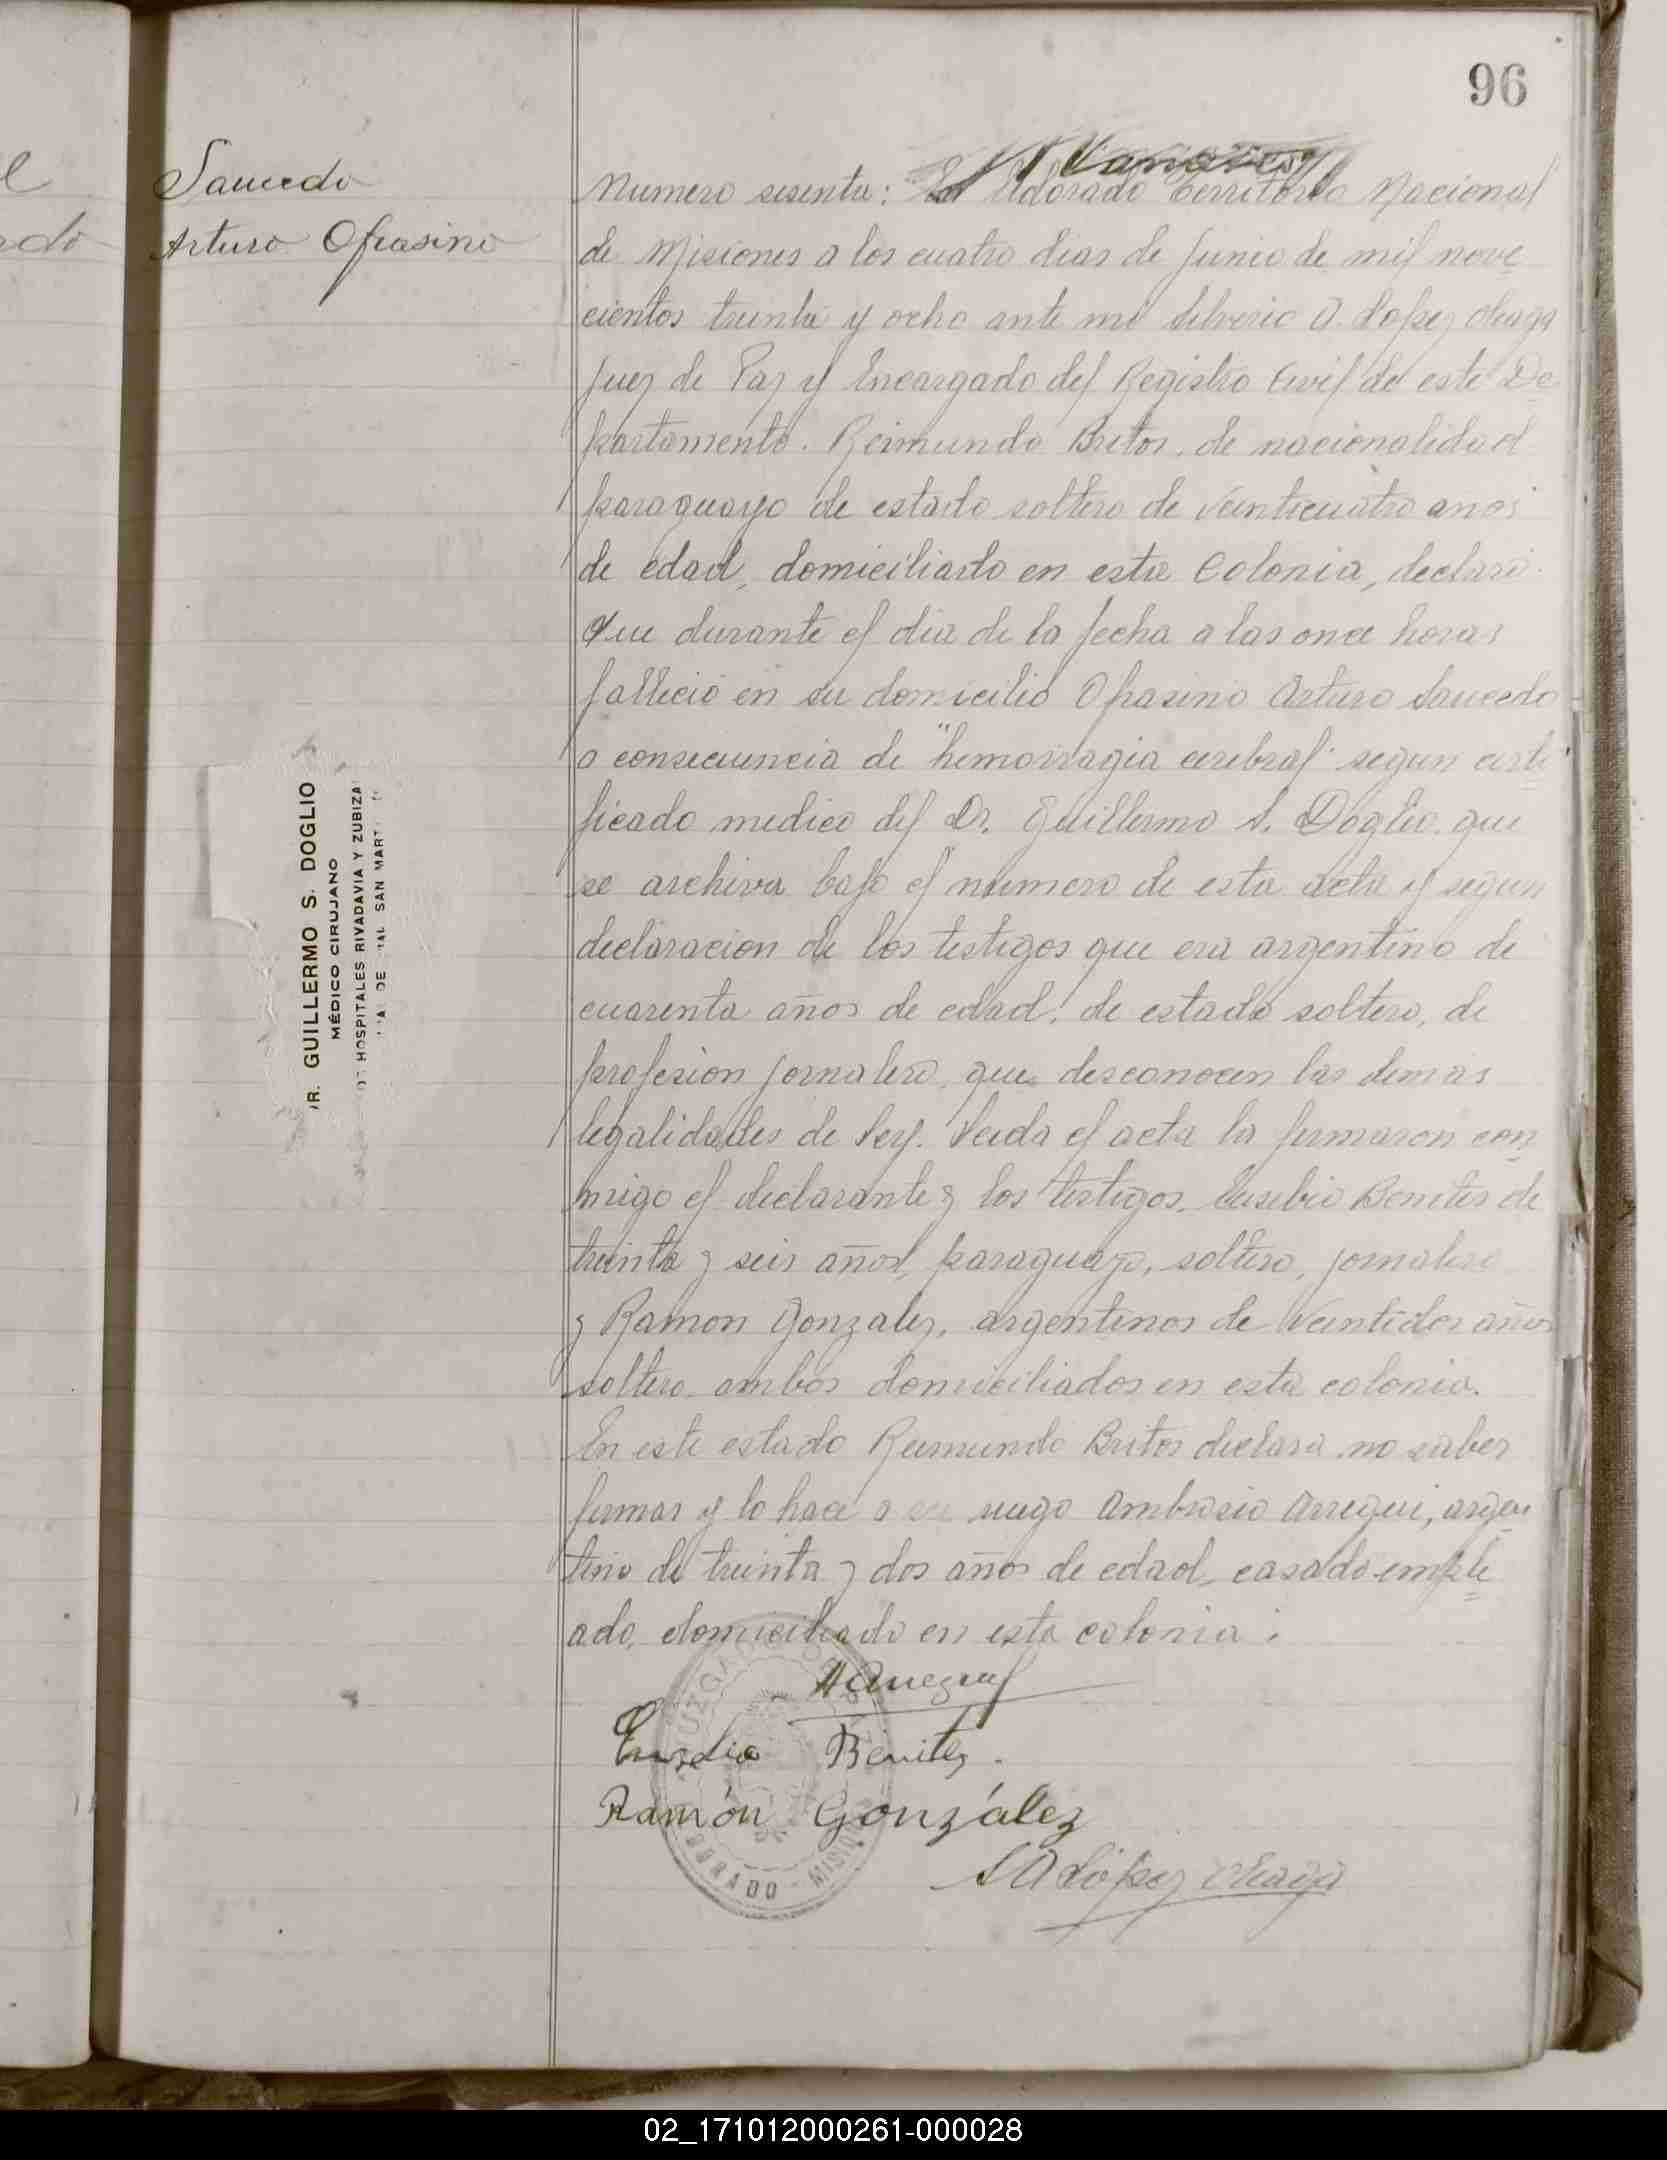 96
Saucedo
Arturo Ofrasino
Numero sesenta: En Eldorado Territorio Nacional
de Misiones a los cuatro dias de Junio de mil nove
cientos treinta y ocho ante mi Silverio A. Lopez Aleaga
Juez de Paz y Encargado del Registro Civil de este De
partamento. Reimundo Britos, de nacionalidad
paraguayo de estado soltero de veinticuatro anos
de edad, domiciliado en esta Colonia, declaró
Que durante el dia de la fecha a las once horas
falleció en su domicilio Ofrasino Arturo Saucedo
a consecuencia de "hemorragia cerebral" segun certi
ficado medico del Dr. Guillermo S. Doglio que
se archiva bajo el numero de esta acta y segun
declaracion de los testigos que era argentino de
cuarenta años de edad, de estado soltero, de
profesion jornalero, que desconocen las demas
legalidades de Ley. Leida el acta la firmaron con
migo el declarante y los testigos, Eusebio Benites de
treinta y seis años, paraguayo, soltero, jornalero
y Ramon Gonzalez, argentinos de veintidos años
soltero, ambos domiciliados en esta colonia.
En este estado Reimundo Britos declara no saber
firmar y lo hace a su ruego Ambrosio Arregui, argen
tino de treinta y dos años de edad, casado emple
ado, domiciliado en esta colonia:
Eusebio Benitez.
Ramón González
S A López Aleaga
JUZGADO
DORADO - MISIO
R. GUILLERMO S. DOGLIO
MÉDICO CIRUJANO
HOSPITALES RIVADAVIA Y ZUBIZA
SAN MART
02_171012000261-000028